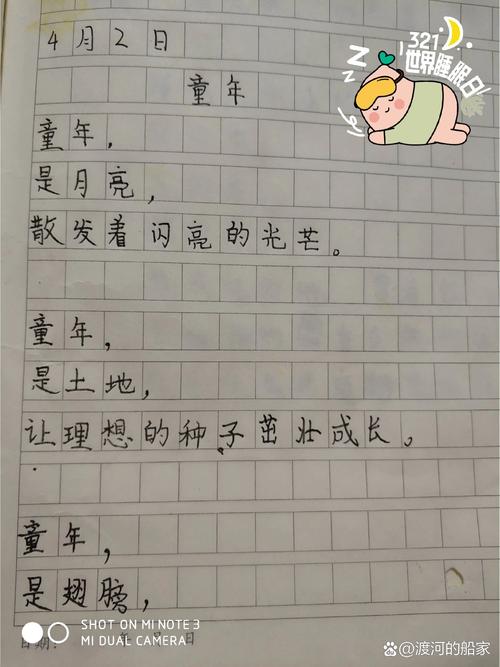 4月2日
1321
世界睡眠日
童年
童年，
是月亮，
散发着闪亮的光芒。
童年，
是土地，
让理想的种子茁壮成长。
童年，
是翅膀，
SHOT ON MI NOTE 3
MI DUAL CAMERA
日期： 年 月 日
@渡河的船家